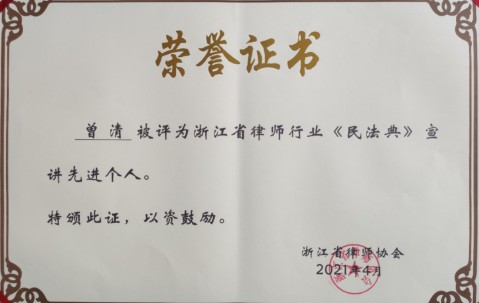 荣誉证书
曾清 被评为浙江省律师行业《民法典》宣
讲先进个人。
特颁此证，以资鼓励。
浙江省律师协会
2021年4月